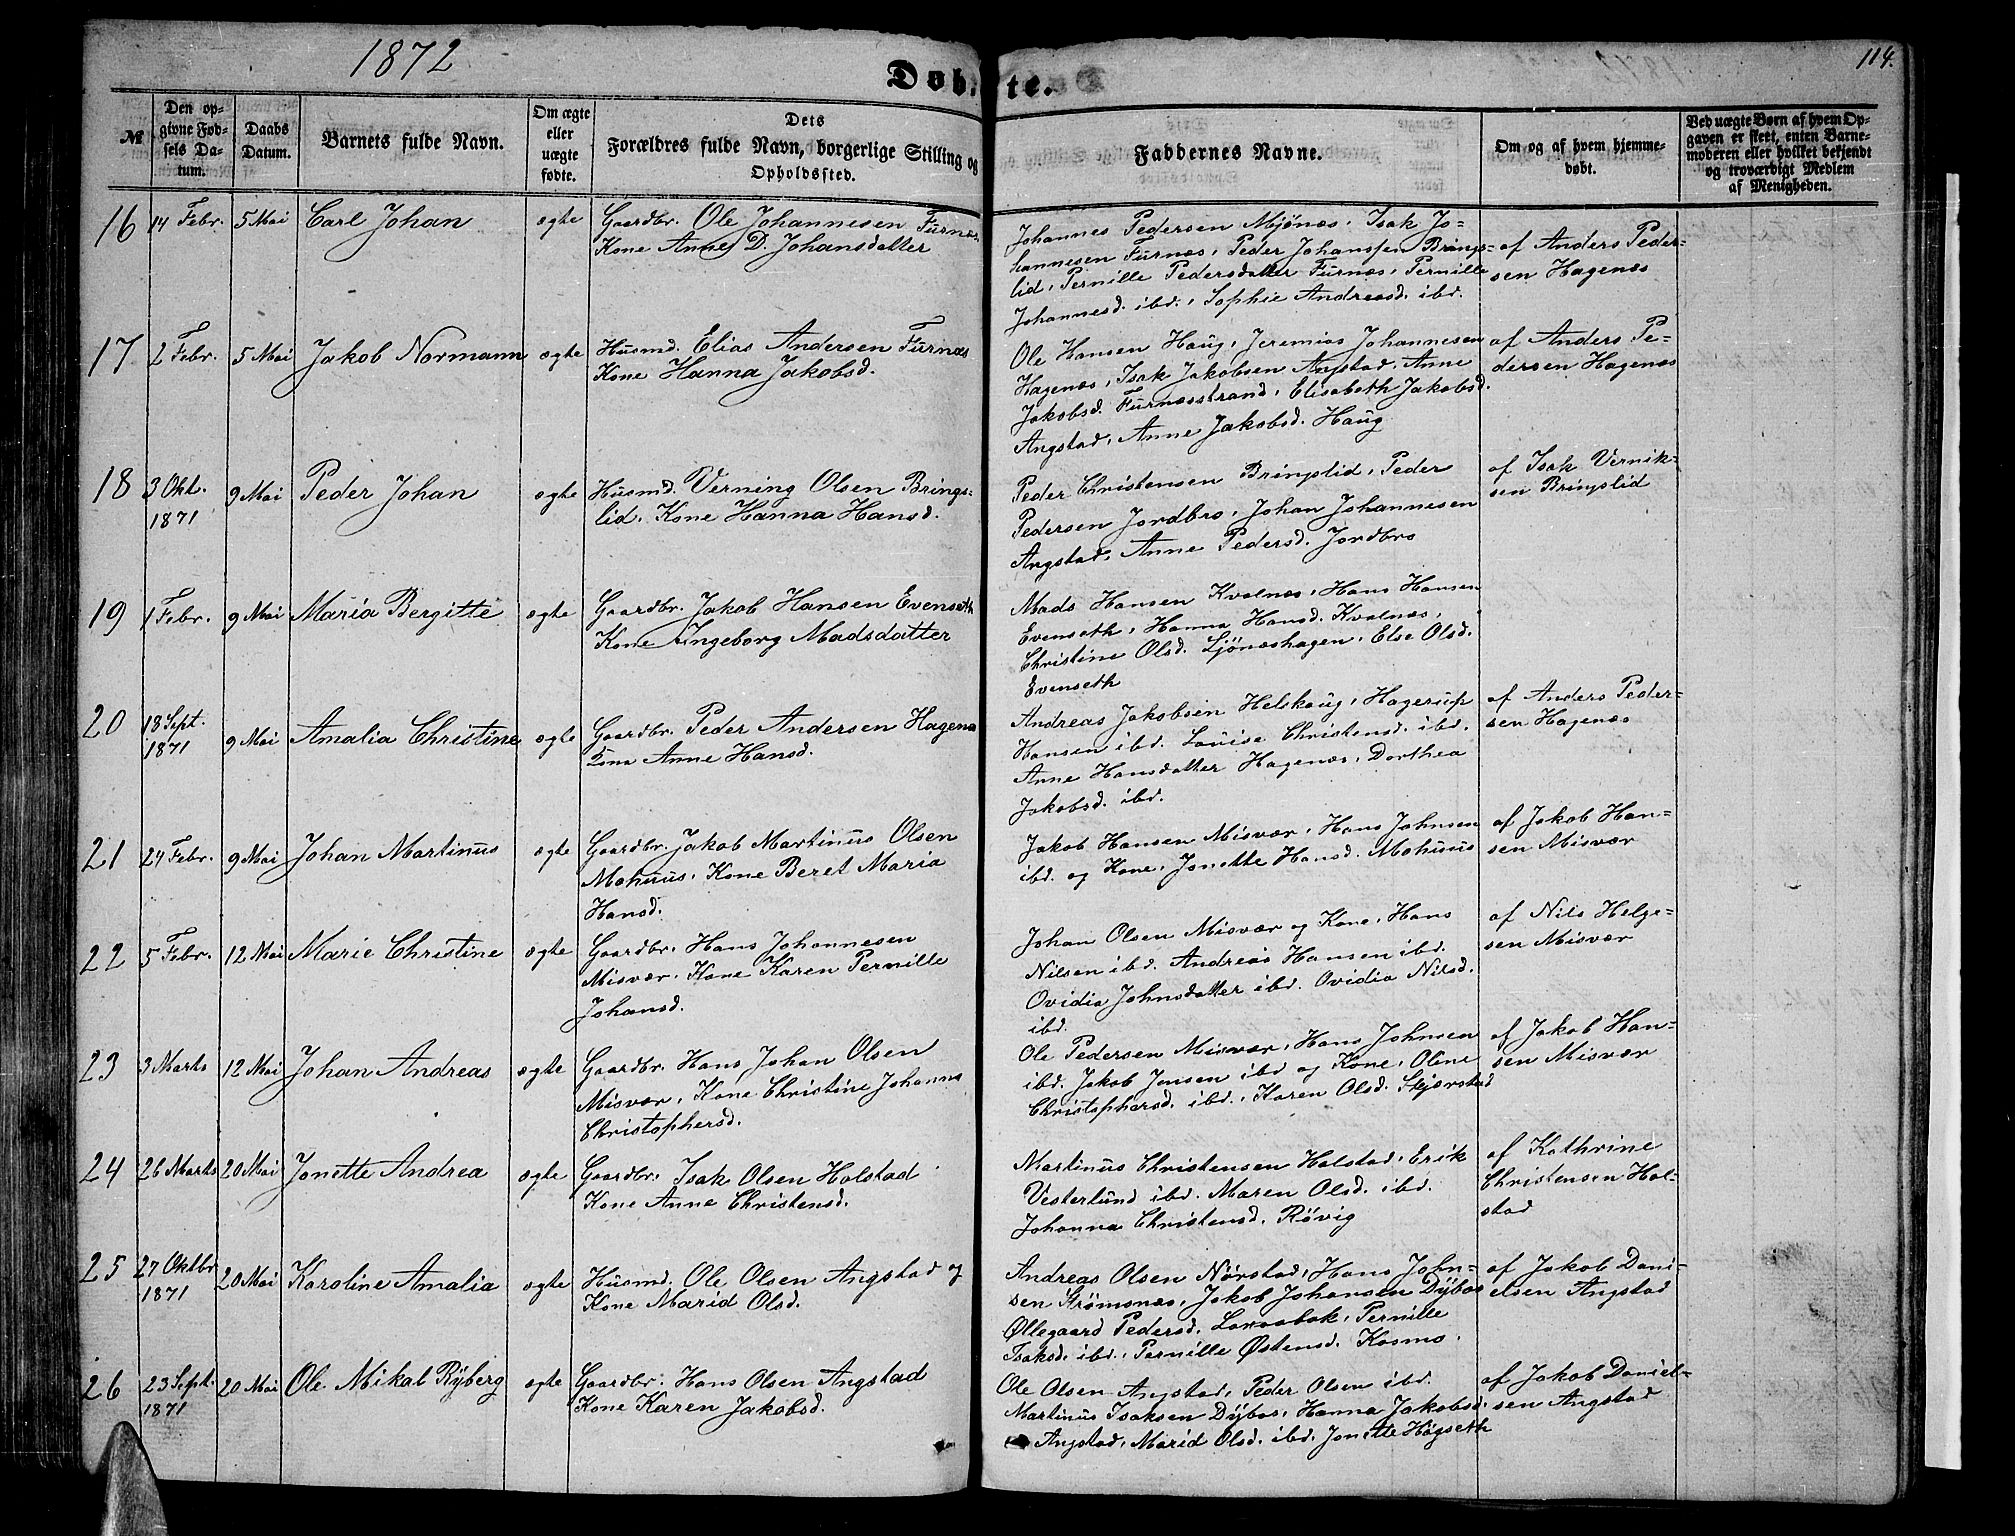 1872
114.
Døbte.
№
Den op-
givne Fød-
sels Da-
tum.
Daabs
Datum.
Barnets fulde Navn.
Om ægte
eller
uægte
fødte.
Dets
Forældres fulde Navn, borgerlige Stilling og
Opholdssted.
Faddernes Navne.
Om og af hvem hjemme-
døbt.
Ved uægte Børn af hvem Op-
gaven er skett, enten Barne-
moderen eller hvilket bekjendt
og troværdigt Medlem
af Menigheden.
16
14 Febr.
5 Mai
Carl Johan
ægte
Gaardbr. Ole Johannesen Furnæs.
Kone Anne D. Johansdatter
Johannes Pedersen Mjønæs, Isak Jo-
hannesen Furnæs, Peder Johansen Brings-
lid, Pernille Pedersdatter Furnæs, Pernille
Johannesd. ibd., Sophie Andreasd. ibd.
af Anders Peder-
sen Hagenæs
17
2 Febr.
5 Mai
Jakob Normann
ægte
Husmd. Elias Andersen Furnæs
Kone Hanna Jakobsd.
Ole Hansen Haug, Jeremias Johannesen
Hagenæs, Isak Jakobsen Angstad, Anne
Jakobsd. Furnæsstrand, Elisabeth Jakobsd.
Angstad, Anne Jakobsd. Haug
af Anders Pe-
dersen Hagenæs
18
3 Okt.
1871
9 Mai
Peder Johan
ægte
Husmd. Verning Olsen Brings-
lid. Kone Hanna Hansd.
Peder Christensen Bringslid, Peder
Pedersen Jordbro, Johan Johannesen
Angstad, Anne Pedersd. Jordbro
af Isak Vernik-
sen Bringslid
19
1 Febr.
9 Mai
Maria Bergitte
ægte
Gaardbr. Jakob Hansen Evenseth
Kone Ingeborg Madsdatter
Mads Hansen Kvalnæs, Hans Hansen
Evenseth, Hanna Hansd. Kvalnæs,
Christine Olsd. Ljønæshagen, Else Olsd.
Evenseth
20
18 Sept.
1871
9 Mai
Amalia Christine
ægte
Gaardbr. Peder Andersen Hagenæs
Kone Anne Hansd.
Andreas Jakobsen Helskoug, Hagerup
Hansen ibd. Louise Christensd. ibd.
Anne Hansdatter Hagenæs, Dorthea
Jakobsd. ibd.
af Anders Peder-
sen Hagenæs
21
24 Febr.
9 Mai
Johan Martinus
ægte
Gaardbr. Jakob Martinus Olsen
Mohuus, Kone Beret Maria
Hansd.
Jakob Hansen Misvær, Hans Johnsen
ibd. og Kone, Jonette Hansd. Mohuus
af Jakob Han-
sen Misvær
22
5 Febr.
12 Mai
Marie Christine
ægte
Gaardbr. Hans Johannesen
Misvær, Kone Karen Pernille
Johansd.
Johan Olsen Misvær og Kone, Hans
Nilsen ibd. Andreas Hansen ibd.
Ovidia Johnsdatter ibd. Ovidia Nilsd.
ibd.
af Nils Helge-
sen Misvær
23
3 Marts
12 Mai
Johan Andreas
ægte
Gaardbr. Hans Johan Olsen
Misvær, Kone Christine Johanna
Christophersd.
Ole Pedersen Misvær, Hans Johnsen
ibd. Jakob Jensen ibd og Kone, Oline
Christophersd. ibd., Karen Olsd. Skjærstad
af Jakob Han-
sen Misvær
24
26 Marts
20 Mai
Jonette Andrea
ægte
Gaardbr. Isak Olsen Holstad
Kone Anne Christensd.
Martinus Christensen Holstad, Erik
Vesterlund ibd. Maren Olsd. ibd.
Johanna Christensd. Røvig
af Kathrine
Christensen Hol-
stad
25
27 Oktbr
1871
20 Mai
Karoline Amalia
ægte
Husmd. Ole Olsen Angstad og
Kone Marid Olsd.
Andreas Olsen Nørstad, Hans John-
sen Strømsnæs, Jakob Johansen Dybos
Øllegaard Pedersd. , Pernille
Isaksd. ibd., Pernille Østensd. Kosmo.
af Jakob Dani-
elsen Angstad
26
23 Sept.
1871
20 Mai
Ole Mikal Ryberg
ægte
Gaardbr. Hans Olsen Angstad
Kone Karen Jakobsd.
Ole Olsen Angstad, Peder Olsen ibd.
Martinus Isaksen Dybos, Hanna Jakobsd.
Angstad, Marid Olsd. ibd. Jonette Høgseth
af Jakob Daniel-
sen Angstad